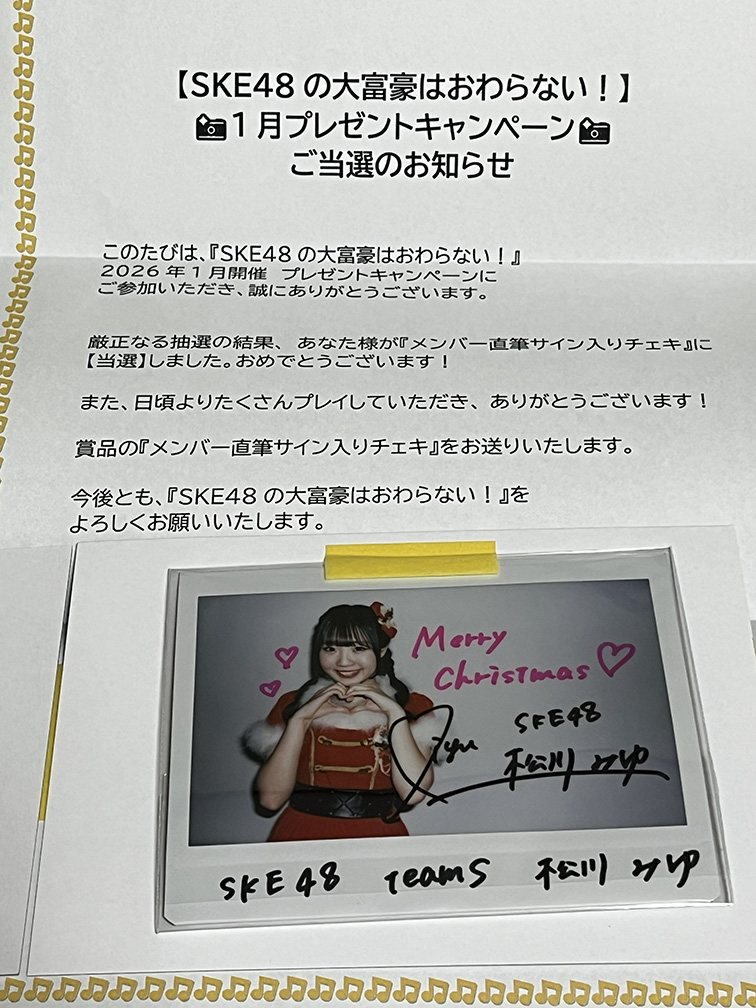 【SKE48の大富豪はおわらない！】
1月プレゼントキャンペーン
ご当選のお知らせ
このたびは、『SKE48の大富豪はおわらない！』
2026年1月開催　プレゼントキャンペーンに
ご参加いただき、誠にありがとうございます。
厳正なる抽選の結果、あなた様が『メンバー直筆サイン入りチェキ』に
【当選】しました。おめでとうございます！
また、日頃よりたくさんプレイしていただき、ありがとうございます！
賞品の『メンバー直筆サイン入りチェキ』をお送りいたします。
今後とも、『SKE48の大富豪はおわらない！』を
よろしくお願いいたします。
Merry
Christmas♡
SKE48
松川みゆ
SKE48 TeamS 松川みゆ